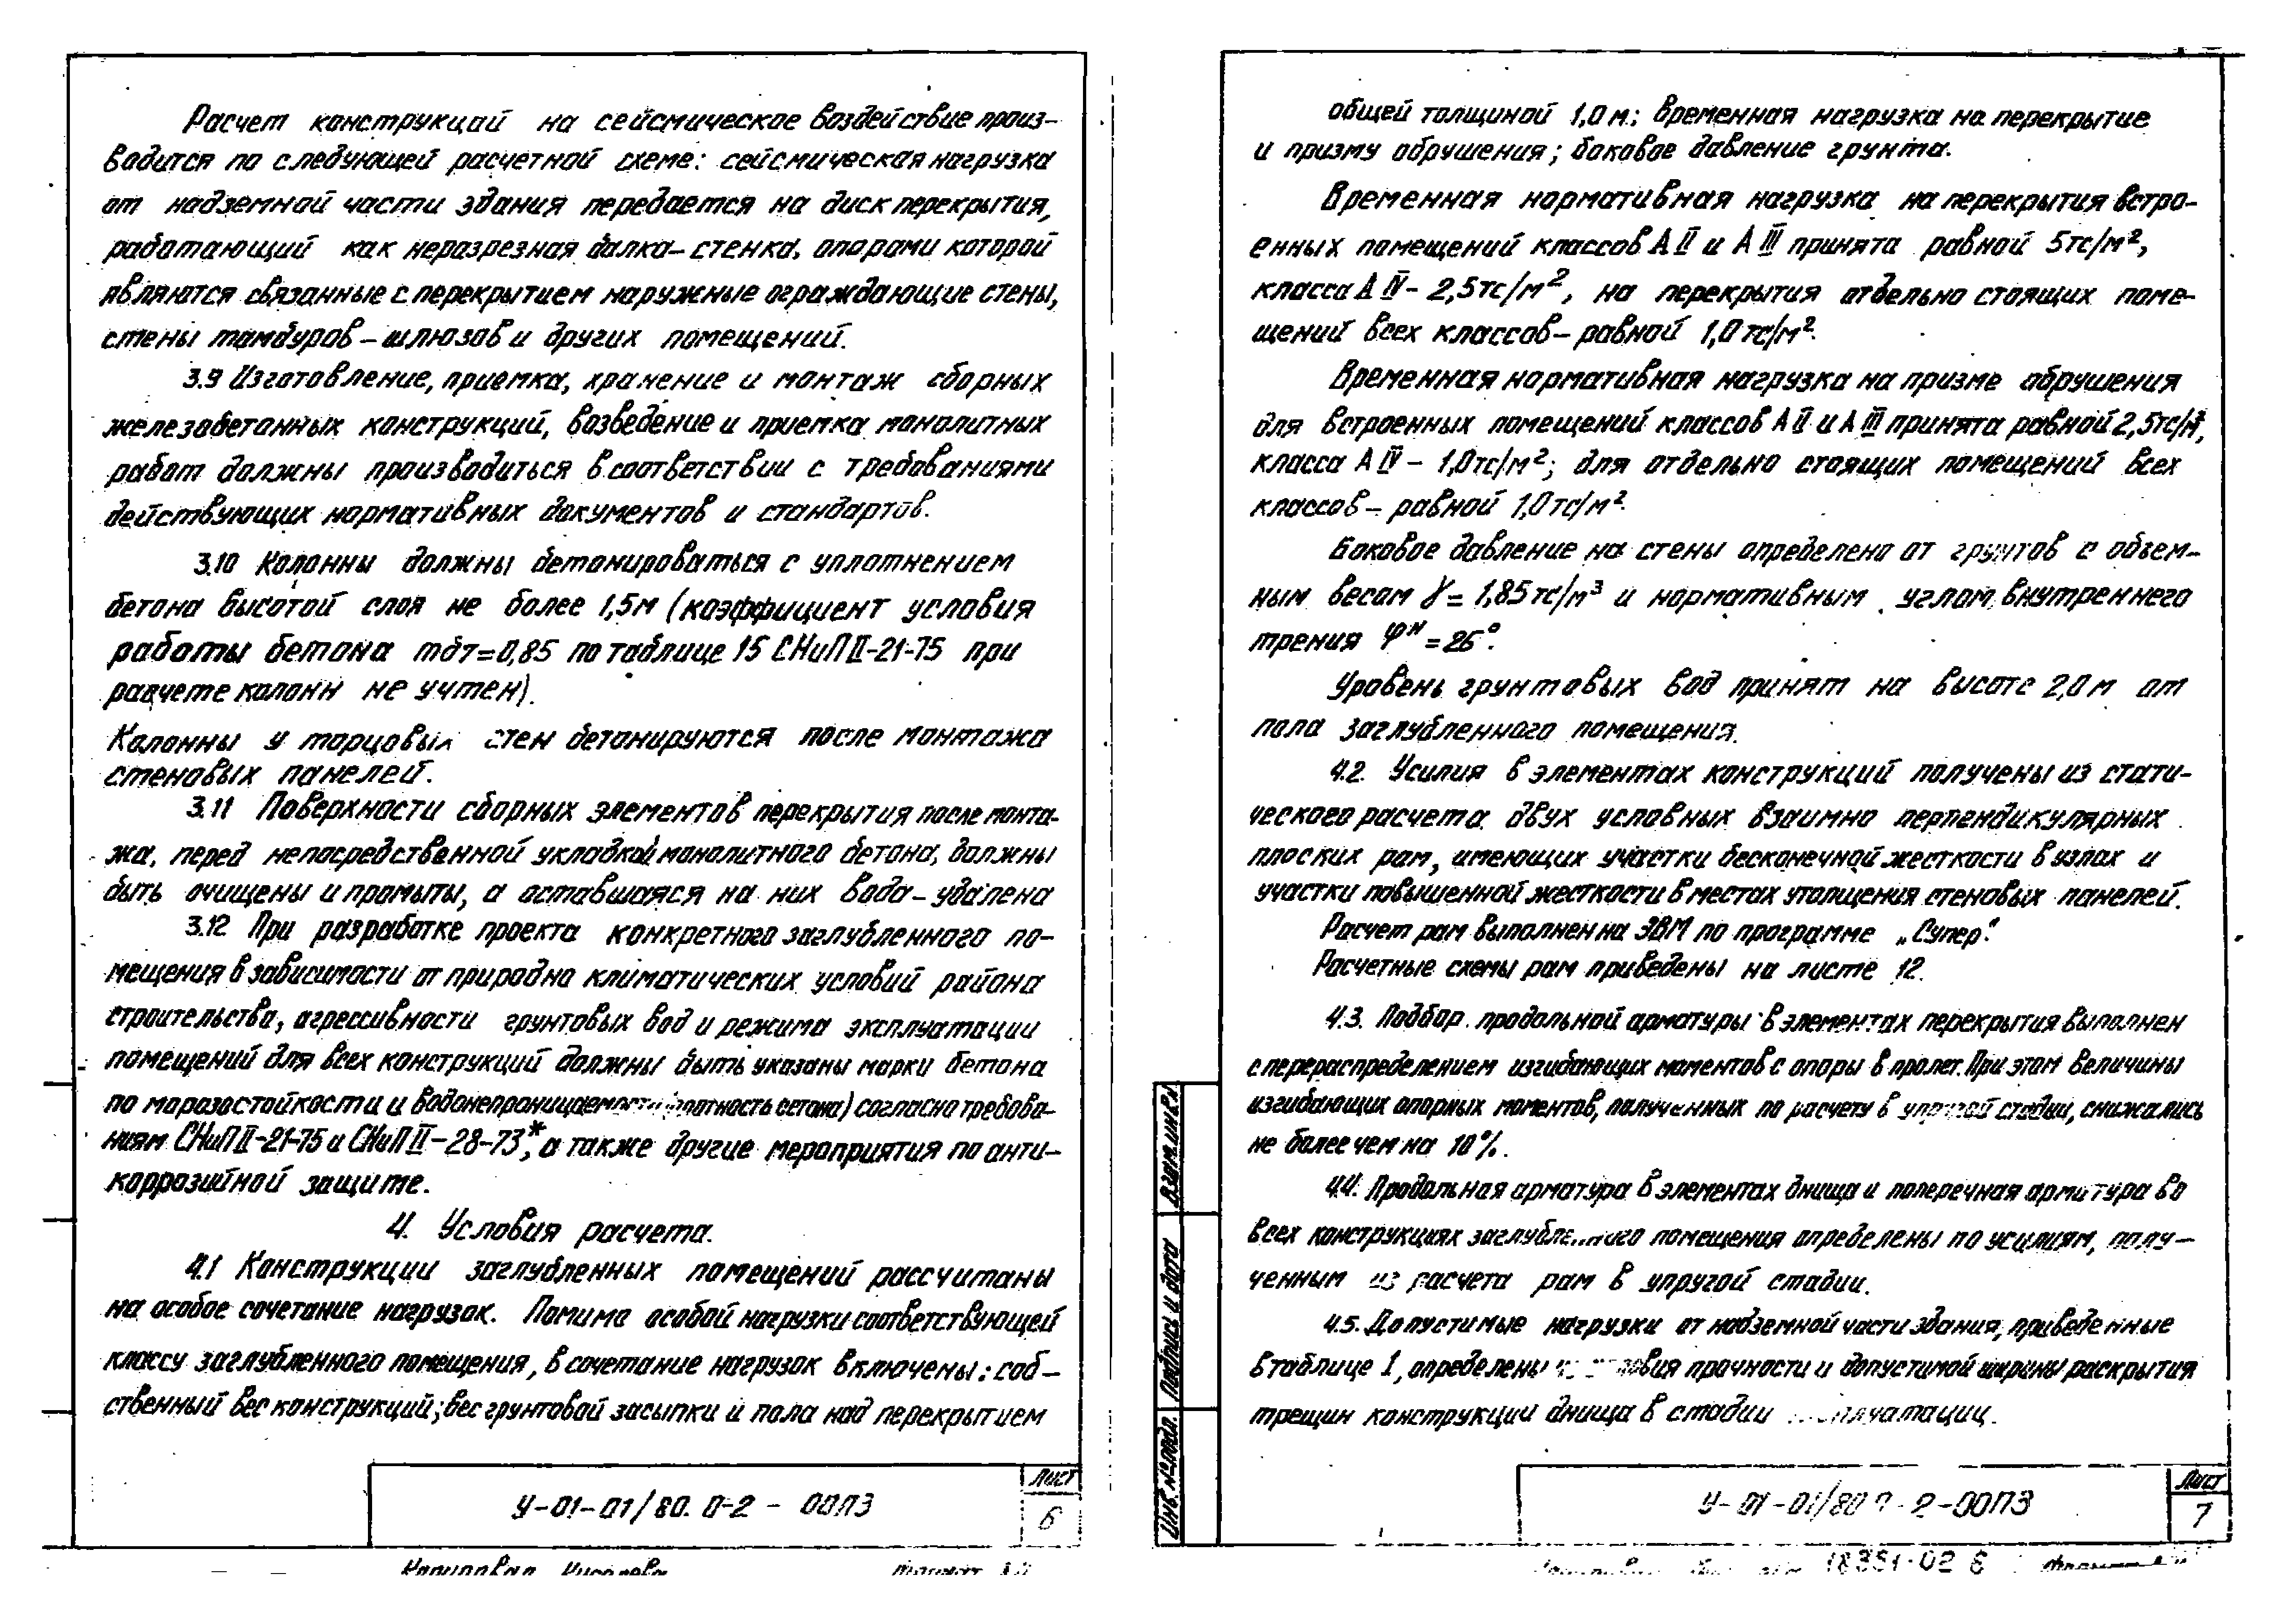 Расчет конструкций на сейсмическое воздействие произ-
водится по следующей расчетной схеме: сейсмическая нагрузка
от надземной части здания передается на диск перекрытия,
работающий как неразрезная балка-стенка, опорами которой
являются связанные с перекрытием наружные ограждающие стены,
стены тамбуров-шлюзов и других помещений.
3.9 Изготовление, приемка, хранение и монтаж сборных
железобетонных конструкций, возведение и приемка монолитных
работ должны производиться в соответствии с требованиями
действующих нормативных документов и стандартов.
3.10 Колонны должны бетонироваться с уплотнением
бетона высотой слоя не более 1,5м (коэффициент условия
работы бетона mбт=0,85 по таблице 15 СНиП II-21-75 при
расчете колонн не учтен).
Колонны у торцовых стен бетонируются после монтажа
стеновых панелей.
3.11 Поверхности сборных элементов перекрытия после монта-
жа, перед непосредственной укладкой монолитного бетона, должны
быть очищены и промыты, а оставшаяся на них вода-удалена
3.12 При разработке проекта конкретного заглубленного по-
мещения в зависимости от природно климатических условий района
строительства, агрессивности грунтовых вод и режима эксплуатации
помещений для всех конструкций должны быть указаны марки бетона
по морозостойкости и водонепроницаемости (плотность бетона) согласно требова-
ниям СНиП II-21-75 и СНиП II-28-73*, а также другие мероприятия по анти-
коррозийной защите.
4. Условия расчета.
4.1 Конструкции заглубленных помещений рассчитаны
на особое сочетание нагрузок. Помимо особой нагрузки соответствующей
классу заглубленного помещения, в сочетание нагрузок включены: соб-
ственный вес конструкций; вес грунтовой засыпки и пола над перекрытием
У-01-01/80. 0-2 - 00ПЗ
Лист
6
Копировал
общей толщиной 1,0 м; временная нагрузка на перекрытие
и призму обрушения; боковое давление грунта.
Временная нормативная нагрузка на перекрытия встро-
енных помещений классов А II и А III принята равной 5тс/м²,
класса А IV - 2,5тс/м², на перекрытия отдельно стоящих поме-
щений всех классов - равной 1,0 тс/м².
Временная нормативная нагрузка на призме обрушения
для встроенных помещений классов А II и А III принята равной 2,5тс/м²,
класса А IV - 1,0тс/м²; для отдельно стоящих помещений всех
классов - равной 1,0 тс/м².
Боковое давление на стены определено от грунтов с объем-
ным весом γ = 1,85 тс/м³ и нормативным углом внутреннего
трения φᴴ = 26°.
Уровень грунтовых вод принят на высоте 2,0 м от
пола заглубленного помещения.
4.2. Усилия в элементах конструкций получены из стати-
ческого расчета двух условных взаимно перпендикулярных
плоских рам, имеющих участки бесконечной жесткости в узлах и
участки повышенной жесткости в местах утолщения стеновых панелей.
Расчет рам выполнен на ЭВМ по программе „Супер“.
Расчетные схемы рам приведены на листе 12.
4.3. Подбор продольной арматуры в элементах перекрытия выполнен
с перераспределением изгибающих моментов с опоры в пролет. При этом величины
изгибающих опорных моментов, полученных по расчету в упругой стадии, снижались
не более чем на 10%.
4.4. Продольная арматура в элементах днища и поперечная арматура во
всех конструкциях заглубленного помещения определены по усилиям, полу-
ченным из расчета рам в упругой стадии.
4.5. Допустимые нагрузки от надземной части здания, приведенные
в таблице 1, определены из условия прочности и допустимой ширины раскрытия
трещин конструкции днища в стадии эксплуатации.
Взам. инв. №
Подпись и дата
Инв. № подл.
У-01-01/80 0-2-00ПЗ
Лист
7
18351-02 8